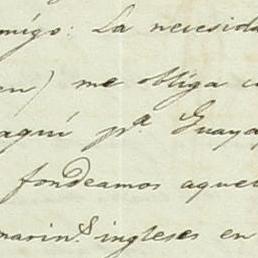 migo: La necesida
en) me obliga a
aquí pª Guaya
fondeamos aque
marin.s ingleses en